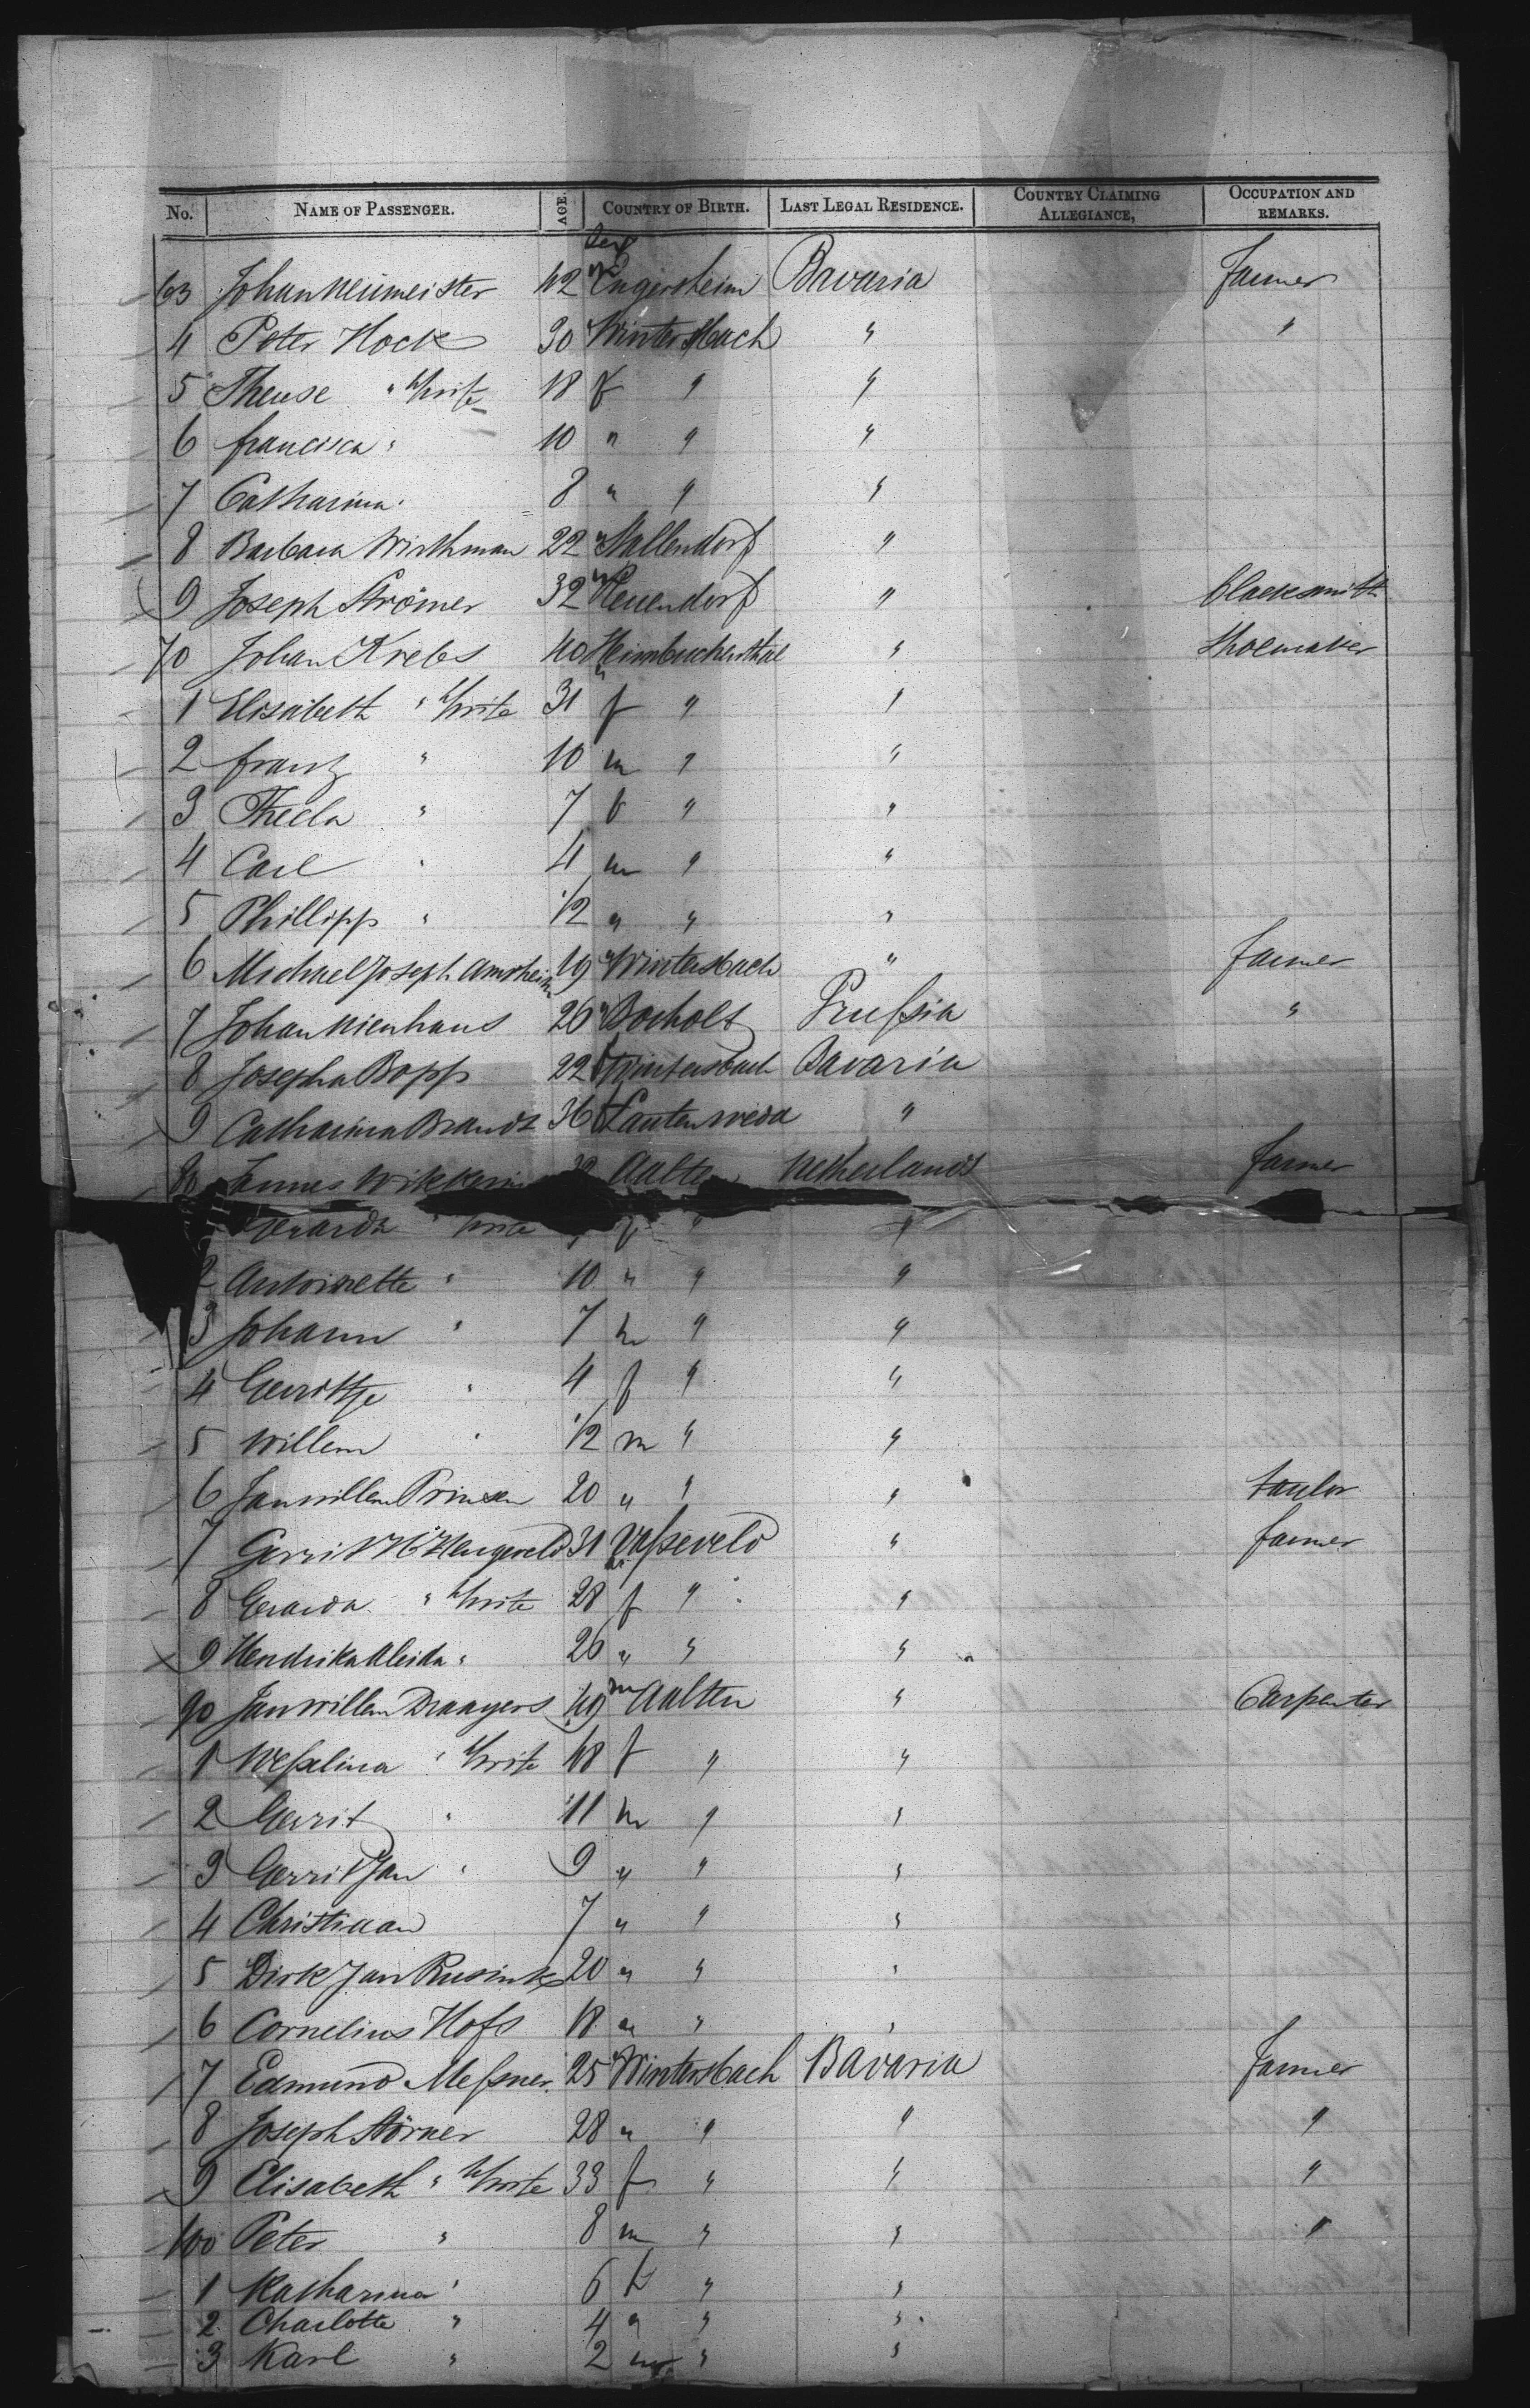 No. NAME OF PASSENGER. AGE. COUNTRY OF BIRTH. LAST LEGAL RESIDENCE. COUNTRY CLAIMING ALLEGIANCE, OCCUPATION AND REMARKS.
Sex
63 Johan Neumeister 42 m Engersheim Bavaria Farmer
4 Peter Hock 30 " Wintersbach " "
5 Therese " Wife 18 f " "
6 Francisca " 10 " " "
7 Catharina " 8 " " "
8 Barbara Wirthman 22 " Hallendorf "
9 Joseph Strömer 32 m Heuendorf " blacksmith
70 Johan Krebs 40 " Heimbuchenthal " Shoemaker
1 Elisabeth " Wife 31 f " "
2 Frantz " 10 m " "
3 Thecla " 7 f " "
4 Carl " 4 m " "
5 Phillipp " 1/2 " " "
6 Michael Joseph Amrhein 19 " Wintersbach " farmer
7 Johan Nienhaus 26 " Bocholt Prussia "
8 Josepha Bopp 22 f Wintersbach Bavaria
9 Catharina Brandt 36 f Lautenweda "
80 Jannes Wikkerin Aalten Netherlands farmer
Gerarda " Wife f " "
2 Antoinette " 10 " " "
3 Johann " 7 m " "
4 Gerritje " 4 f " "
5 Willem " 1/2 m " "
6 Jan Willem Prinsen 20 " " " taylor
7 Gerrit H. Hengeveld 31 m Vasseveld " farmer
8 Gerarda " Wife 28 f " "
9 Hendrika Aleida " 26 " " "
90 Jan Willem Draayers 49 m Aalten " Carpenter
1 Wesselina " Wife 48 f " "
2 Gerrit " 11 m " "
3 Gerrit Jan " 9 " " "
4 Christiaan 7 " " "
5 Dirk Jan Rusink 20 " " "
6 Cornelius Hofs 18 " " "
7 Edmund Messner 25 " Wintersbach Bavaria farmer
8 Joseph Störner 28 " " " "
9 Elisabeth " Wife 33 f " " "
100 Peter " 8 m " " "
1 Katharina " 6 f " "
2 Charlotte " 4 " " "
3 Karl " 2 m " "